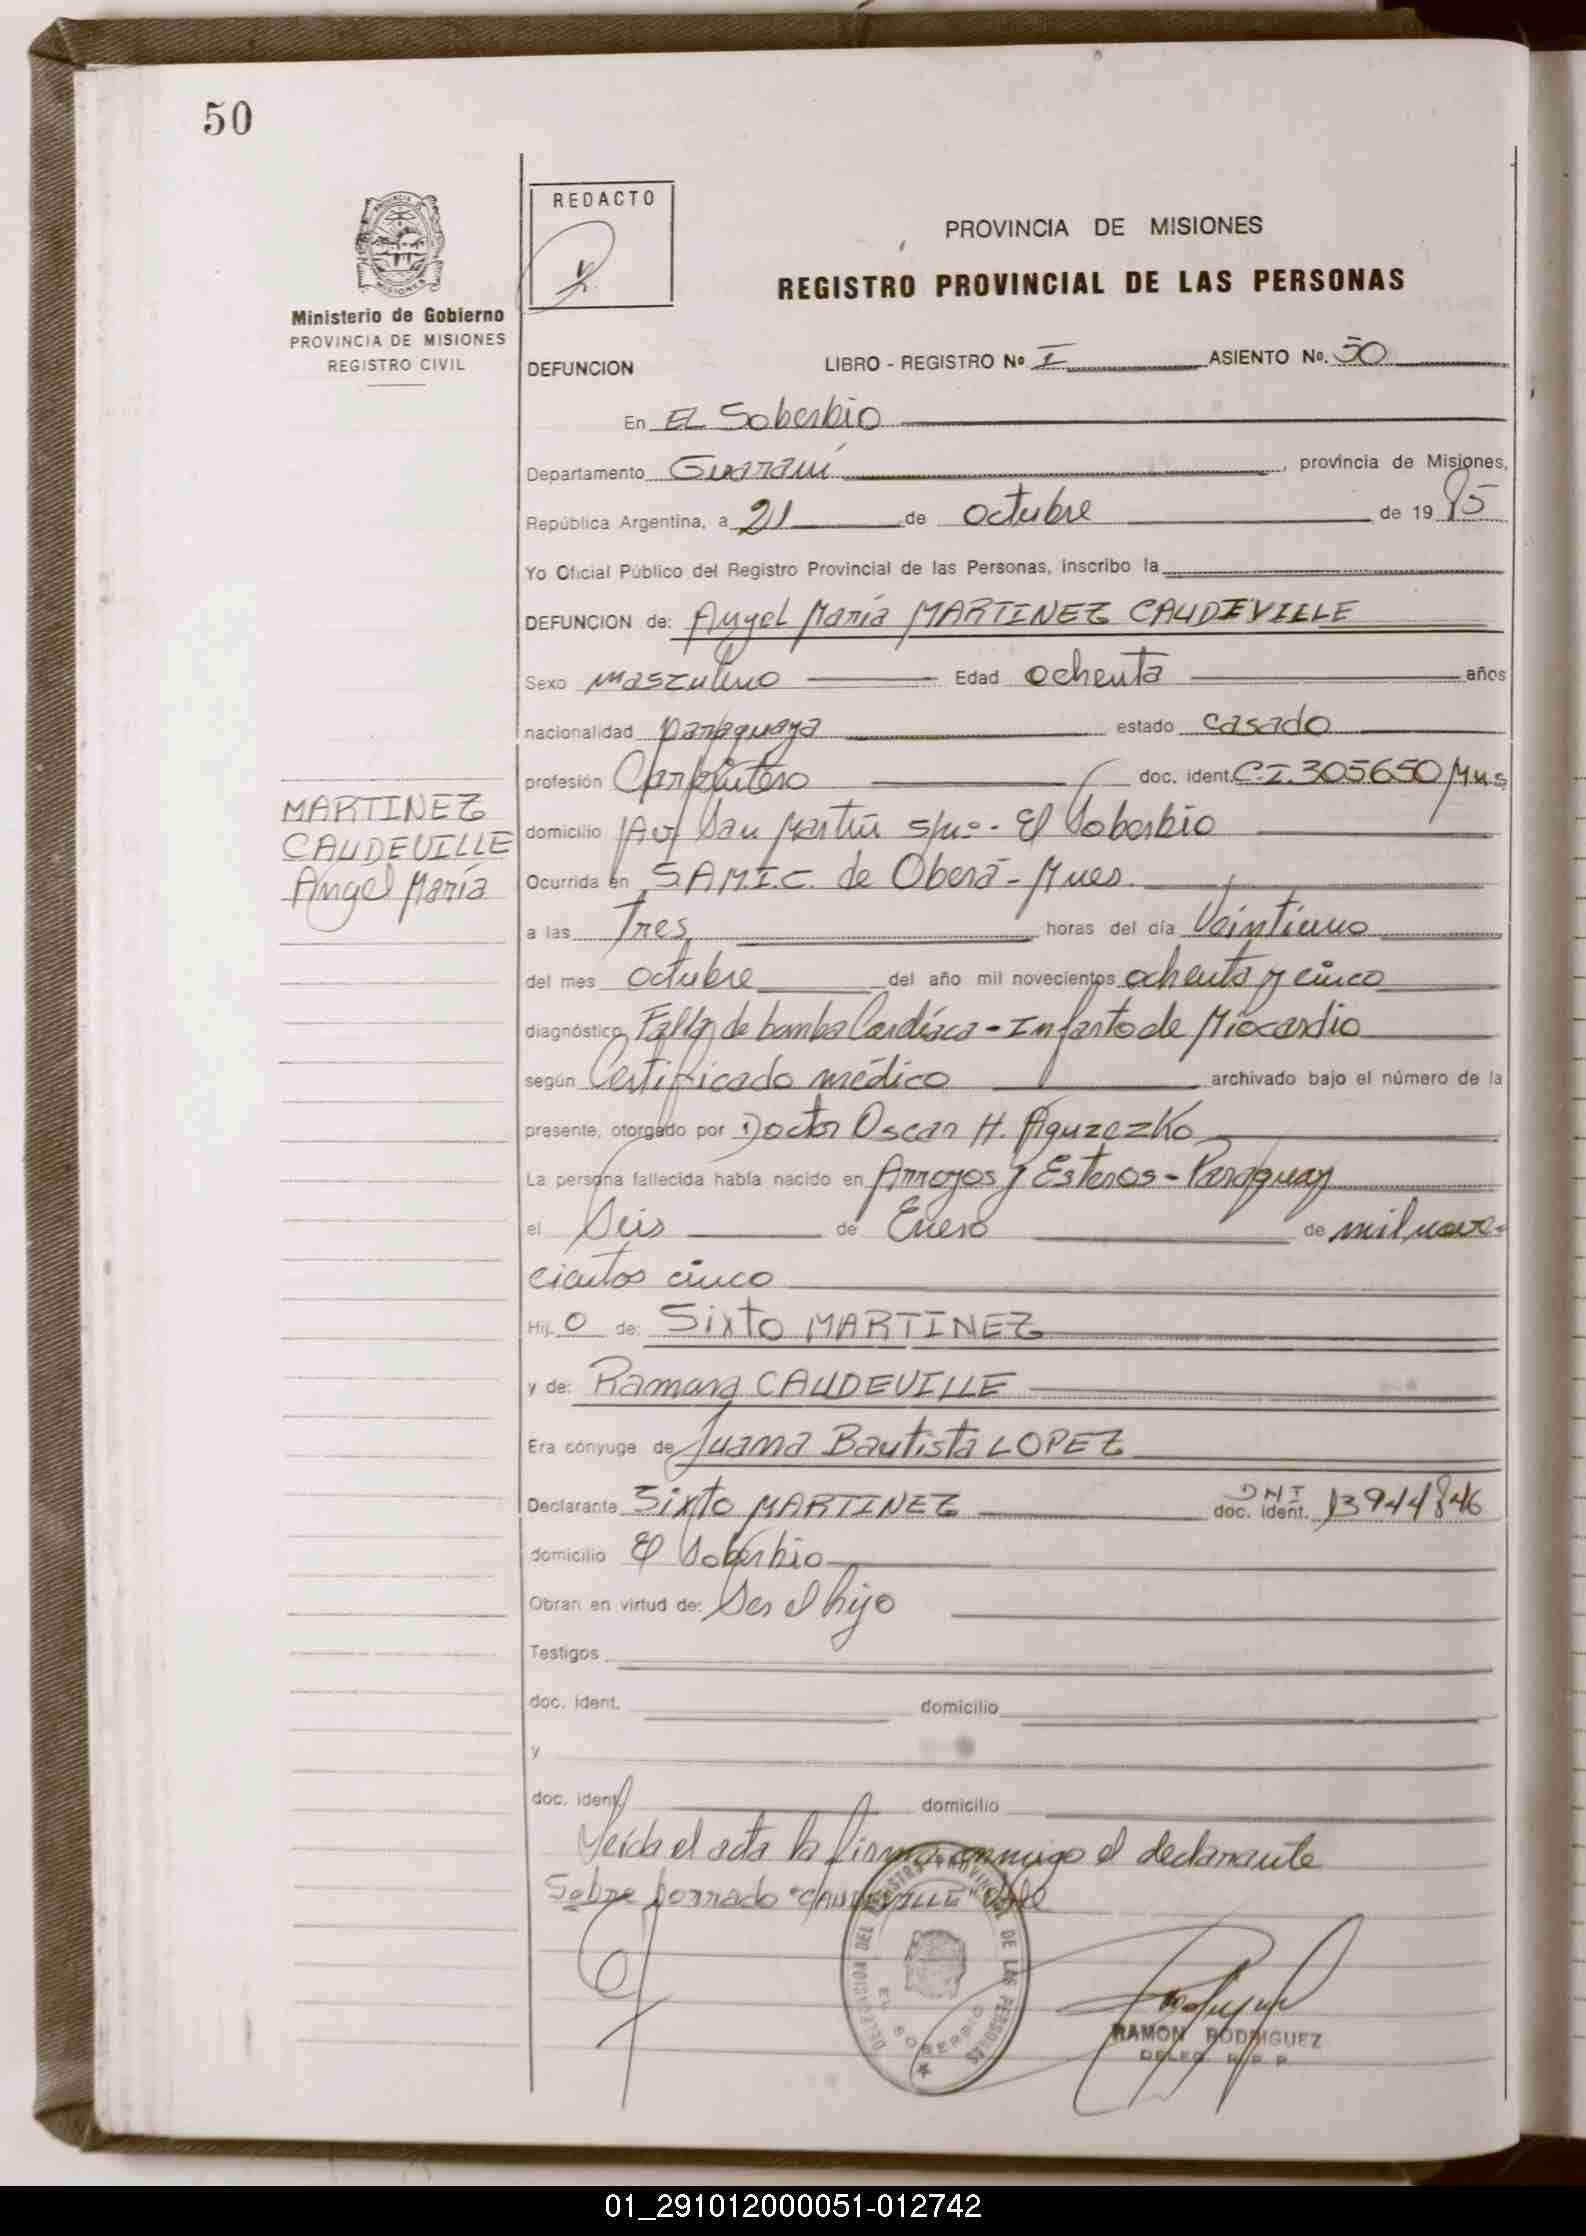 50
REDACTO
PROVINCIA DE MISIONES
REGISTRO PROVINCIAL DE LAS PERSONAS
Ministerio de Gobierno
PROVINCIA DE MISIONES
REGISTRO CIVIL
DEFUNCION LIBRO - REGISTRO Nº I ASIENTO Nº. 50
En EL Soberbio
Departamento Guaraní, provincia de Misiones,
República Argentina, a 21 de octubre de 19 85
Yo Oficial Público del Registro Provincial de las Personas, inscribo la
DEFUNCION de: Angel María MARTINEZ CAUDEVILLE
Sexo masculino Edad ochenta años
nacionalidad paraguaya estado casado
profesión Carpintero doc. ident. C.I. 305650 Mnes
MARTINEZ
CAUDEVILLE
Angel María
domicilio Av. San Martín s/nº - El Soberbio
Ocurrida en S.A.M.I.C. de Oberá - Mnes.
a las Tres horas del día Veintiuno
del mes octubre del año mil novecientos ochenta y cinco
diagnóstico Falla de bomba Cardíaca - Infarto de Miocardio
según Certificado médico archivado bajo el número de la
presente, otorgado por Doctor Oscar H. Aguzezko
La persona fallecida había nacido en Arroyos y Esteros - Paraguay
el Seis de Enero de mil nove-
cientos cinco
Hij o de: Sixto MARTINEZ
y de: Ramona CAUDEVILLE
Era cónyuge de Juana Bautista LOPEZ
Declarante Sixto MARTINEZ DNI doc. ident. 13944846
domicilio El Soberbio
Obran en virtud de: Ser el hijo
Testigos
doc. ident. domicilio
y
doc. ident. domicilio
Leída el acta la firma conmigo el declarante
Sobre borrado "CAUDEVILLE" Vale
DELEGACION DEL REGISTRO PROVINCIAL DE LAS PERSONAS
EL SOBERBIO
RAMON RODRIGUEZ
DELEG. R. P. P.
01_291012000051-012742